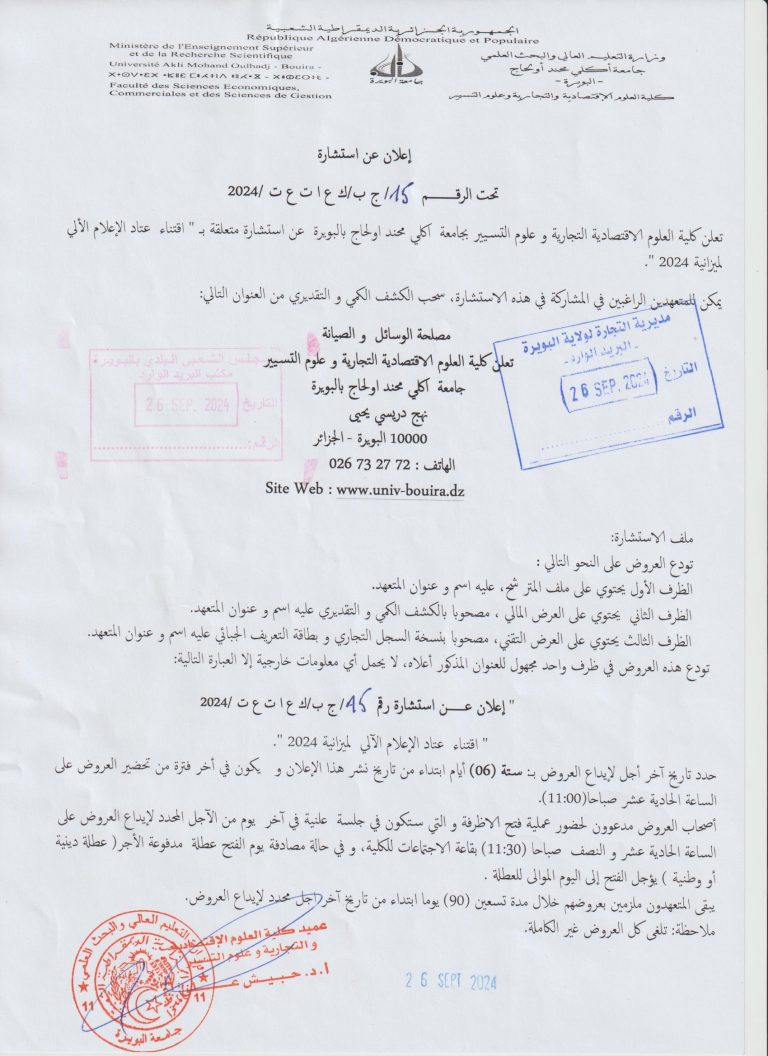 الجمهورية الجزائرية الديمقراطية الشعبية
République Algérienne Démocratique et Populaire
Ministère de l'Enseignement Supérieur
et de la Recherche Scientifique
Université Akli Mohand Oulhadj - Bouira -
Faculté des Sciences Economiques,
Commerciales et des Sciences de Gestion
وزارة التعليم العالي والبحث العلمي
جامعة أكلي محند أولحاج
- البويرة -
كلية العلوم الاقتصادية والتجارية وعلوم التسيير
جامعة البويرة
إعلان عن استشارة
تحت الرقـــــم 15/ ج ب/ك ع ا ت ع ت /2024
تعلن كلية العلوم الاقتصادية التجارية و علوم التسيير بجامعة اكلي محند اولحاج بالبويرة عن استشارة متعلقة بـ " اقتناء عتاد الإعلام الألي
لميزانية 2024 ".
يمكن للمتعهدين الراغبين في المشاركة في هذه الاستشارة، سحب الكشف الكمي و التقديري من العنوان التالي:
مصلحة الوسائل و الصيانة
تعلن كلية العلوم الاقتصادية التجارية و علوم التسيير
جامعة اكلي محند اولحاج بالبويرة
نهج دريسي يحيى
10000 البويرة - الجزائر
الهاتف : 72 27 73 026
Site Web : www.univ-bouira.dz
مديرية التجارة لولاية البويرة
- البريد الوارد -
التاريخ 26 SEP. 2024
الرقم
المجلس الشعبي البلدي بالبويرة
مكتب البريد الوارد
التاريخ 26 SEP. 2024
الرقم:
ملف الاستشارة:
تودع العروض على النحو التالي :
الظرف الأول يحتوي على ملف المترشح، عليه اسم و عنوان المتعهد.
الظرف الثاني يحتوي على العرض المالي ، مصحوبا بالكشف الكمي و التقديري عليه اسم و عنوان المتعهد.
الظرف الثالث يحتوي على العرض التقني، مصحوبا بنسخة السجل التجاري و بطاقة التعريف الجبائي عليه اسم و عنوان المتعهد.
تودع هذه العروض في ظرف واحد مجهول للعنوان المذكور أعلاه، لا يحمل أي معلومات خارجية إلا العبارة التالية:
" إعلان عـــن استشارة رقم 15/ ج ب/ك ع ا ت ع ت /2024
" اقتناء عتاد الإعلام الآلي لميزانية 2024 ".
حدد تاريخ آخر أجل لإيداع العروض بـ: ستة (06) أيام ابتداء من تاريخ نشر هذا الإعلان و يكون في أخر فترة من تحضير العروض على
الساعة الحادية عشر صباحا(11:00).
أصحاب العروض مدعوون لحضور عملية فتح الاظرفة و التي ستكون في جلسة علنية في آخر يوم من الآجل المحدد لإيداع العروض على
الساعة الحادية عشر و النصف صباحا (11:30) بقاعة الاجتماعات للكلية، و في حالة مصادفة يوم الفتح عطلة مدفوعة الأجر( عطلة دينية
أو وطنية ) يؤجل الفتح إلى اليوم الموالى للعطلة .
يبقى المتعهدون ملزمين بعروضهم خلال مدة تسعين (90) يوما ابتداء من تاريخ آخر أجل محدد لإيداع العروض.
ملاحظة: تلغى كل العروض غير الكاملة.
عميد كلية العلوم الإقتصادية
و التجارية و علوم التسيير
أ.د. حبيش
11
11
جامعة البويرة
26 SEPT 2024